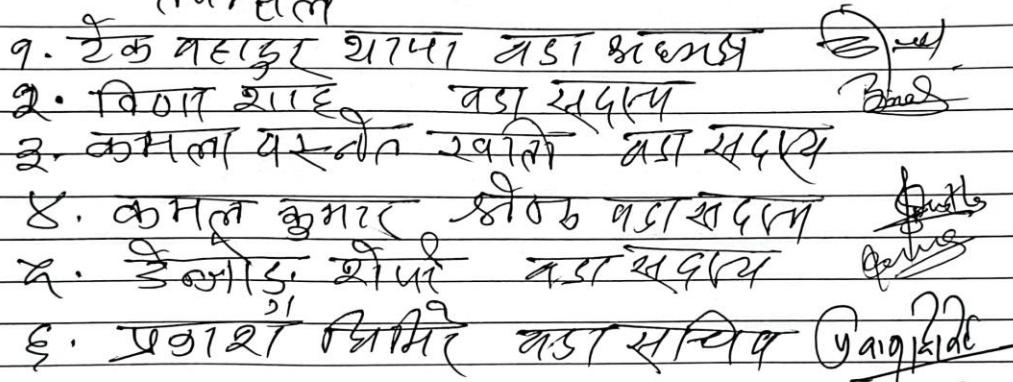 १. टेक बहादुर थापा वडा अध्यक्ष
२. विनोद शाह वडा सदस्य
३. कमला वस्नेत खत्री वडा सदस्य
४. कमल कुमार श्रेष्ठ वडा सदस्य
५. शेर्पा वडा सदस्य
६. प्रकाश घिमिरे वडा सचिव